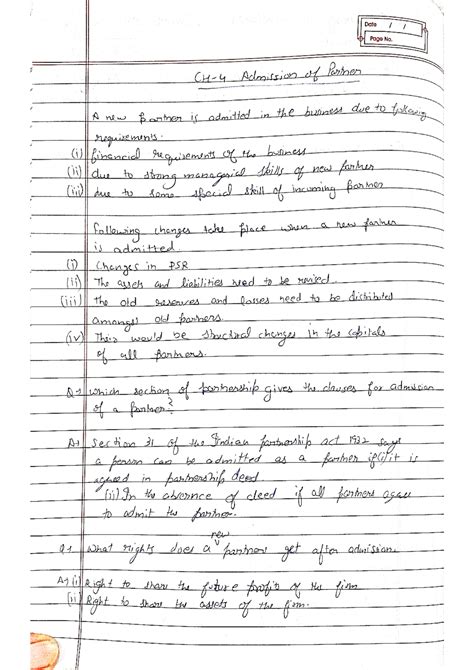 Date / /
Page No.
CH-4 Admission of Partner
A new partner is admitted in the business due to following
requirements.
(i) financial requirements of the business
(ii) due to strong managerial skills of new partner
(iii) due to some special skill of incoming partner
Following changes take place when a new partner
is admitted
(i) Changes in PSR
(ii) The assets and liabilities need to be revised.
(iii) The old reserves and losses need to be distributed
amongst old partners.
(iv) There would be structural changes in the capitals
of all partners.
Q-1 Which section of partnership gives the clauses for admission
of a partner?
A-1 Section 31 of the Indian partnership act 1932 says
a person can be admitted as a partner if (i) it is
agreed in partnership deed
(ii) In the absence of deed if all partners agree
to admit the partner.
Q-1 What rights does a new partner get after admission
A-1 (i) Right to share the future profit of the firm
(ii) Right to share the assets of the firm.